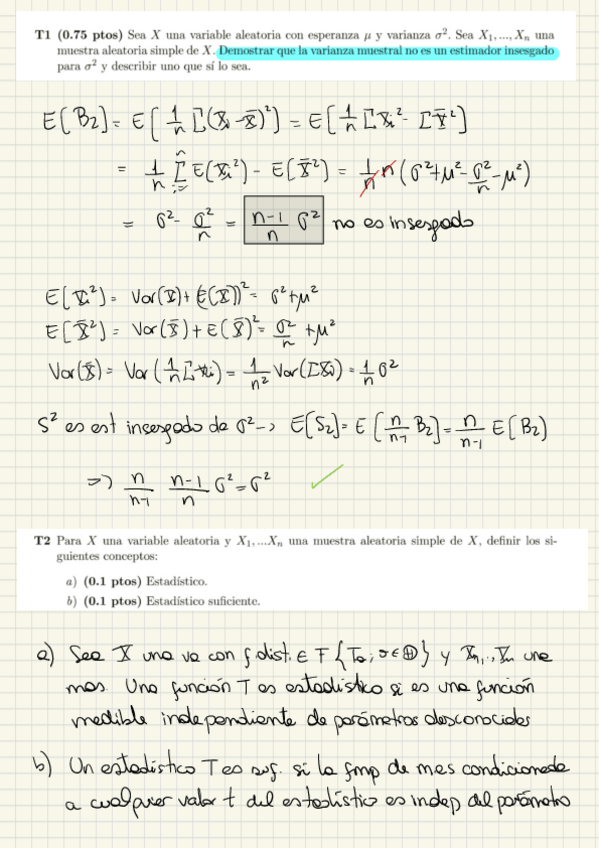 T1 (0.75 ptos) Sea X una variable aleatoria con esperanza μ y varianza σ². Sea X₁, ..., Xₙ una
muestra aleatoria simple de X. Demostrar que la varianza muestral no es un estimador insesgado
para σ² y describir uno que sí lo sea.
E[B₂] = E[1/n Σ(Xᵢ - X̄)²] = E[1/n ΣXᵢ² - ΣX̄²]
= 1/n Σ E(Xᵢ²) - E[X̄²] = 1/n n(σ²+μ² - σ²/n - μ²)
= σ² - σ²/n = n-1/n σ² no es insesgado
E[Xᵢ²] = Var(X) + (E(X))² = σ²+μ²
E[X̄²] = Var(X̄) + E(X̄)² = σ²/n + μ²
Var(X̄) = Var(1/n Σxᵢ) = 1/n² Var(ΣXᵢ) = 1/n σ²
S² es est insesgado de σ² -> E[S₂] = E[n/n-1 B₂] = n/n-1 E[B₂)
=> n/n-1 n-1/n σ² = σ² ✓
T2 Para X una variable aleatoria y X₁, ...Xₙ una muestra aleatoria simple de X, definir los si-
guientes conceptos:
a) (0.1 ptos) Estadístico.
b) (0.1 ptos) Estadístico suficiente.
a) Sea X una va con f dist. ∈ F{Tθ; θ∈Θ} y X₁,..,Xₙ una
mas. Una función T es estadístico si es una función
medible independiente de parámetros desconocidos
b) Un estadístico T es suf. si la fmp de mas condicionada
a cualquier valor t del estadístico es indep del parámetro